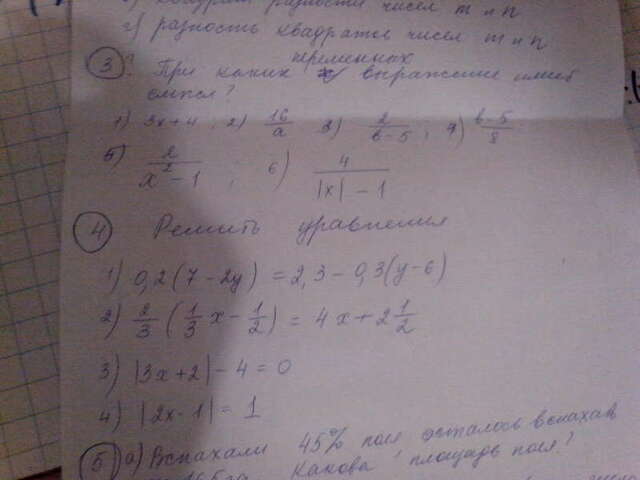 квадрат разности чисел m и n
г) разность квадратов чисел m и n
переменных
3 При каких выражение имеет
смысл?
1) 3x+4; 2) 16/a 3) 2/(b-5); 4) (b-5)/8
5) 2/(x²-1); 6) 4/(|x|-1)
4 Решить уравнения
1) 0,2(7-2y) = 2,3-0,3(y-6)
2) 2/3 (1/3 x - 1/2) = 4x+2 1/2
3) |3x+2|-4=0
4) |2x-1|=1
5 а) Вспахали 45% поля осталось вспахать
Какова площадь поля?